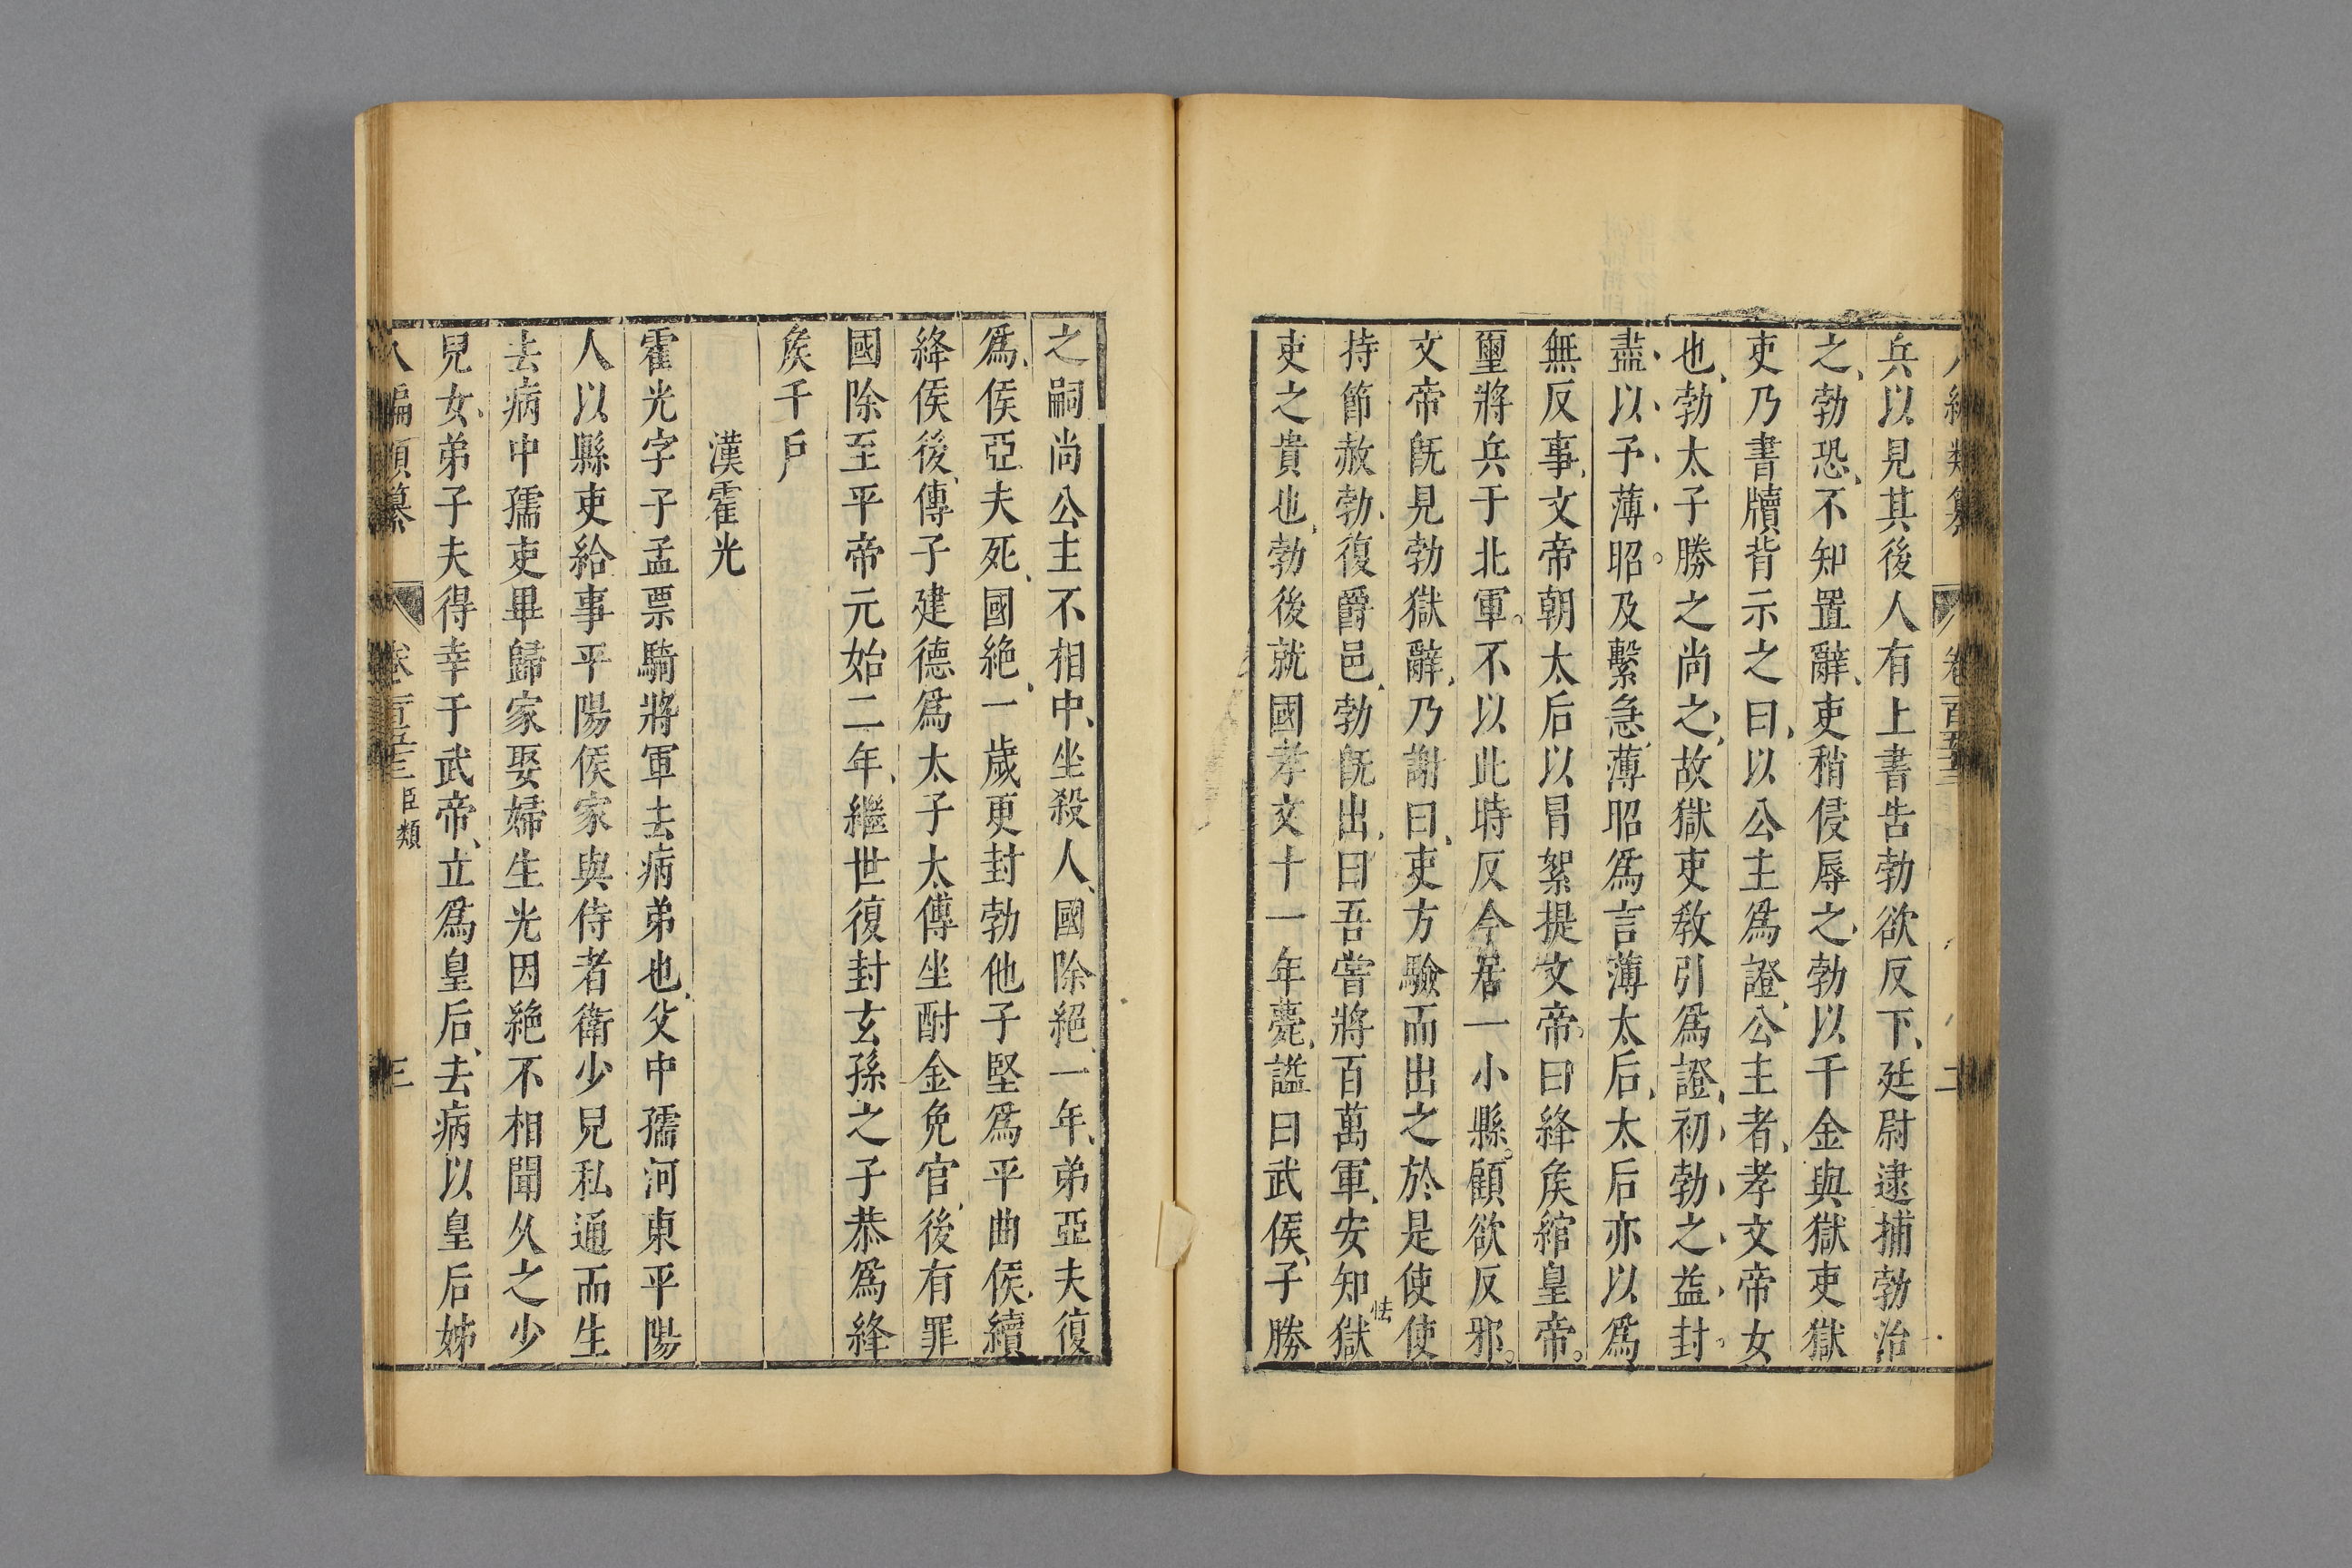 兵以見其後人有上書告勃欲反下、廷尉逮捕勃治
之、勃恐、不知置辭、吏稍侵辱之、勃以千金與獄吏獄
吏乃書牘背示之曰、以公主爲證、公主者、孝文帝女
也、勃太子勝之尚之、故獄吏教引爲證、初、勃之益封、
盡以予薄昭。及繫急、薄昭爲言薄太后、太后亦以爲
無反事、文帝朝太后以冒絮提文帝、曰絳矦綰皇帝。
璽將兵于北軍。不以此時反今居一小縣。顧欲反邪。
文帝旣見勃獄辭、乃謝曰、吏方驗而出之於是使使
持節赦勃、復爵邑、勃旣出、曰吾嘗將百萬軍、安知獄
怯
吏之貴也、勃後就國孝文十一年薨、謚曰武侯、子勝
之嗣尚公主不相中、坐殺人、國除絕、一年、弟亞夫復
爲、侯亞夫死、國絶、一歲更封勃他子堅爲平曲侯、續
絳侯後、傳子建德爲太子太傅坐酎金免官、後有罪
國除至平帝元始二年、繼世復封玄孫之子恭爲絳
矦千戶
漢霍光
霍光字子孟票騎將軍去病弟也、父中孺河東平陽
人以縣吏給事平陽侯家與侍者衛少兒私通而生
去病中孺吏畢歸家娶婦生光因絶不相聞久之少
兒女、弟子夫得幸于武帝、立爲皇后、去病以皇后姊
八編類纂 卷一百五十三 臣類 三